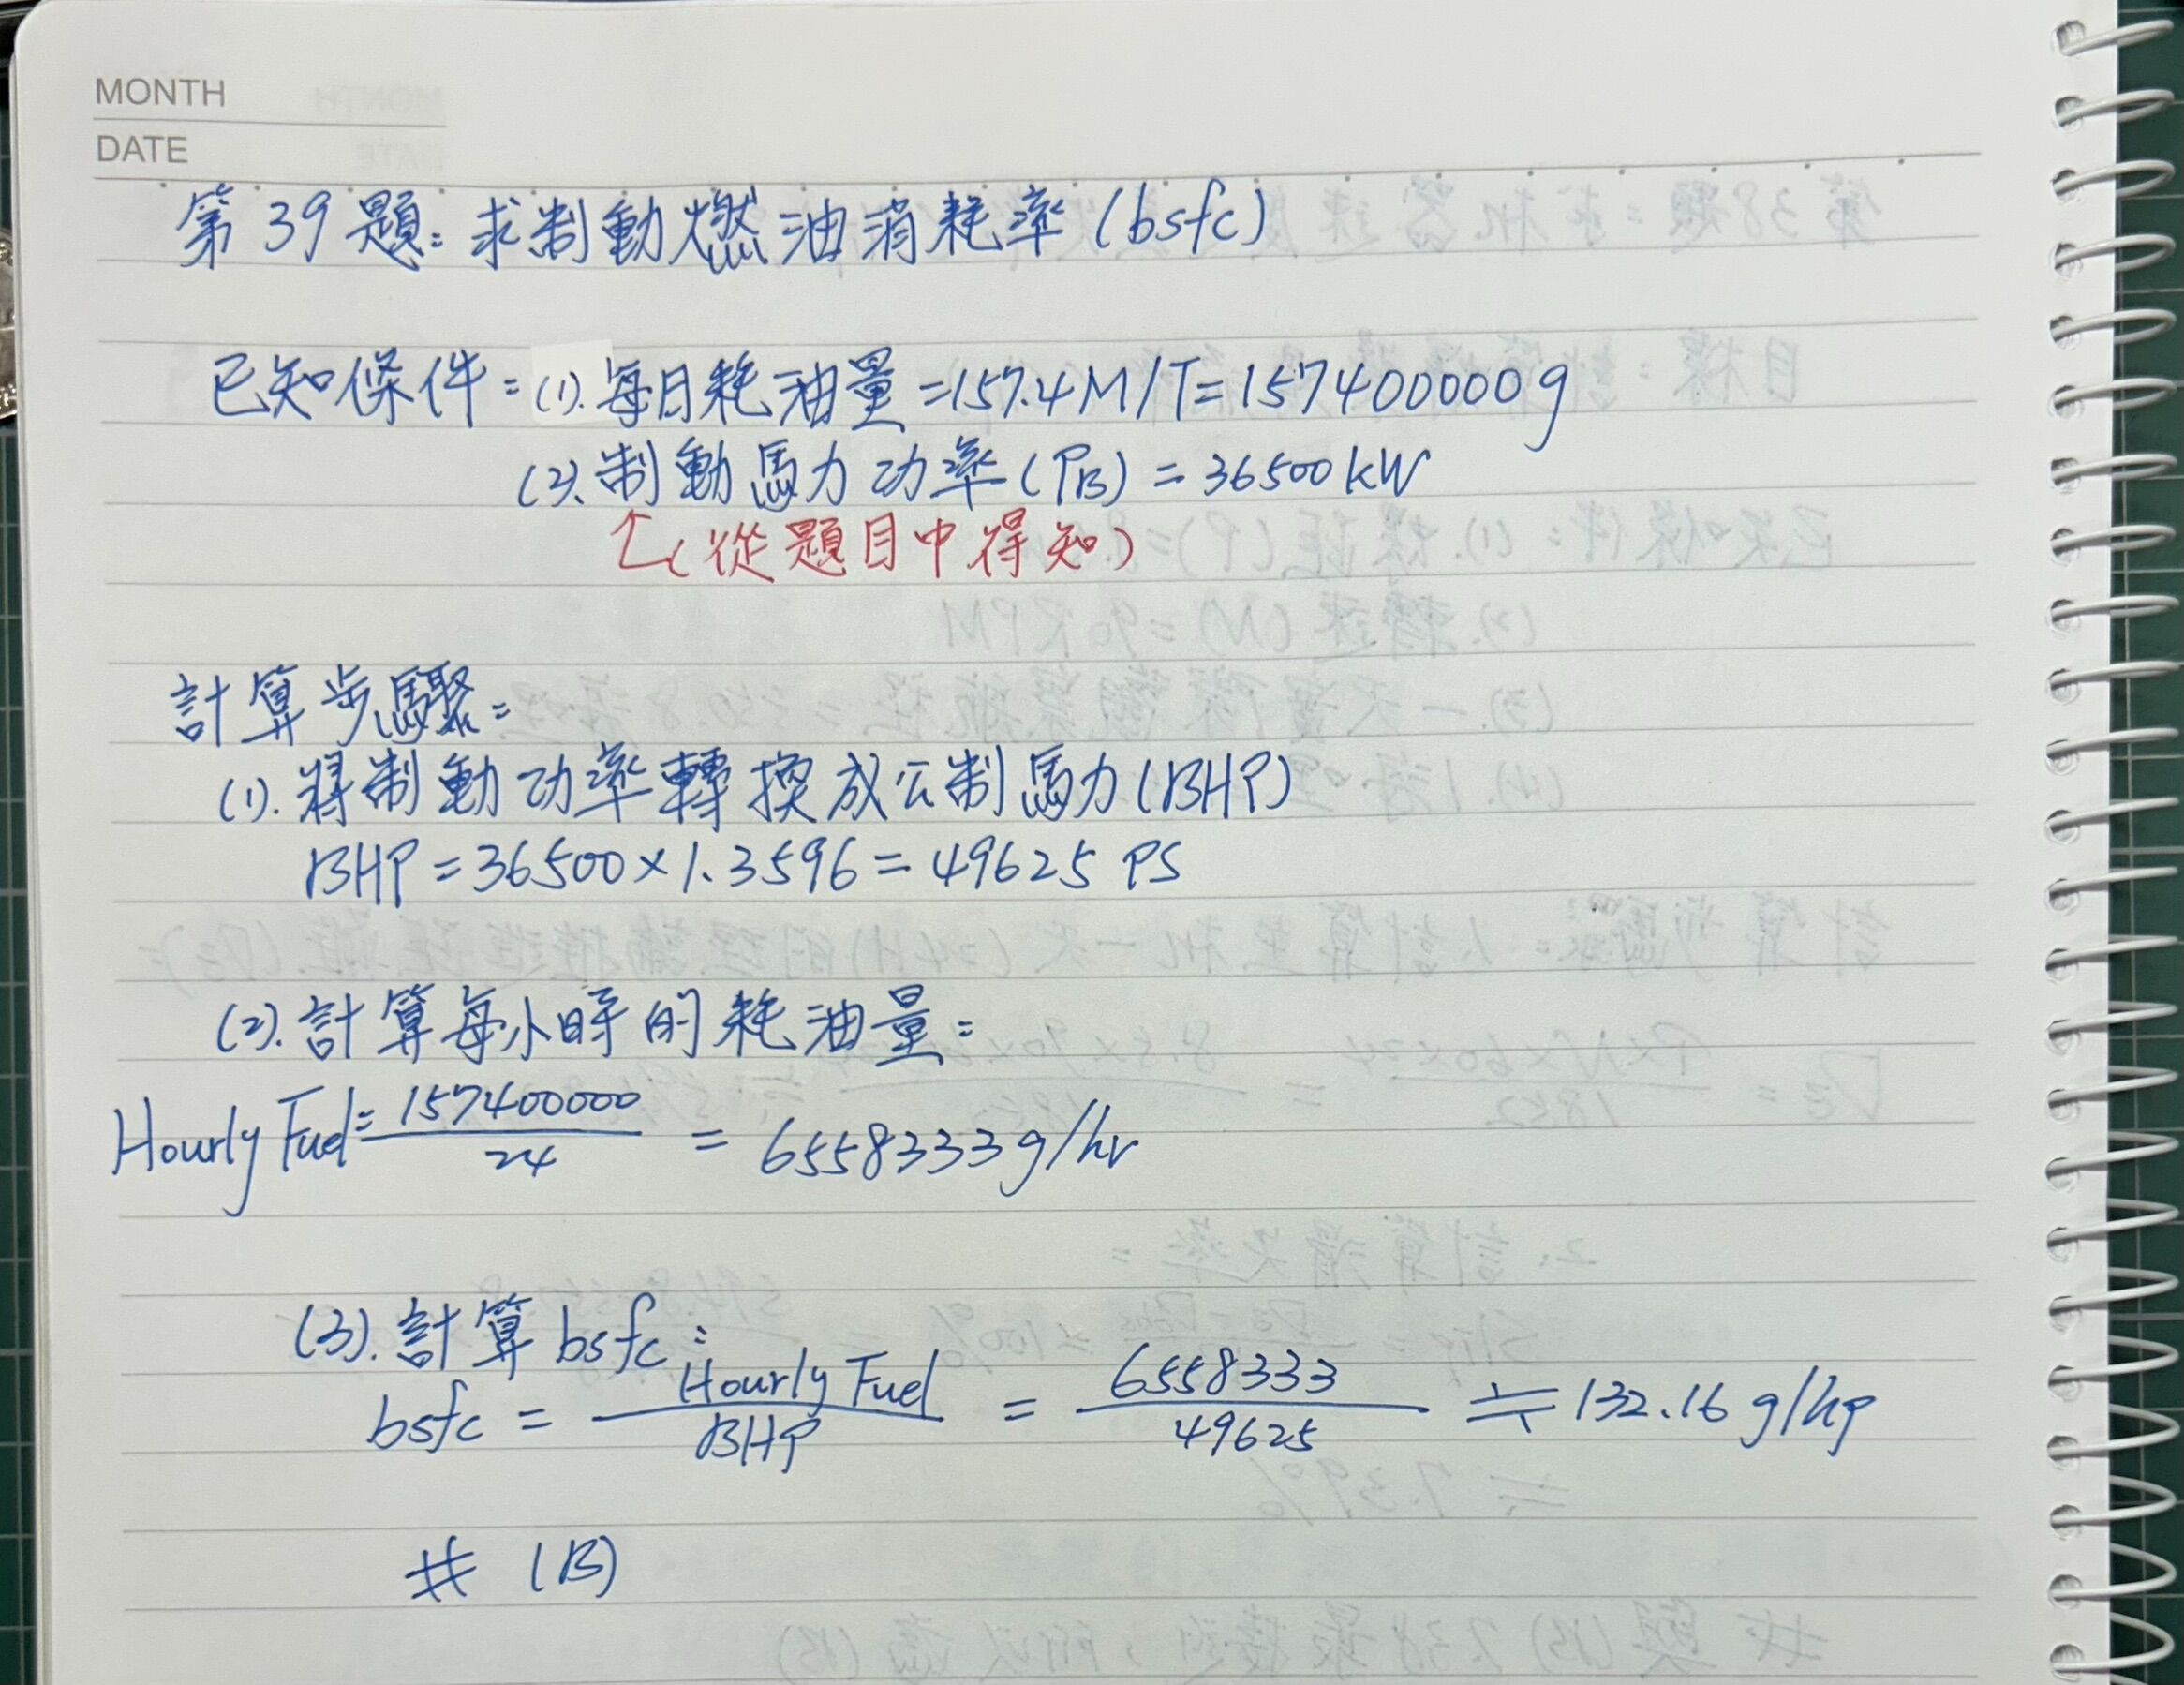 MONTH
DATE
第39題:求制動燃油消耗率(bsfc)
已知條件:(1).每日耗油量=157.4M/T=157400000g
(2).制動馬力功率(PB)=36500kW
↑(從題目中得知)
計算步驟:
(1).將制動功率轉換成公制馬力(BHP)
BHP=36500×1.3596=49625 PS
(2).計算每小時的耗油量:
Hourly Fuel=157400000/24 = 6558333g/hr
(3).計算bsfc:
bsfc = Hourly Fuel/BHP = 6558333/49625 ≒132.16 g/hp
# (B)